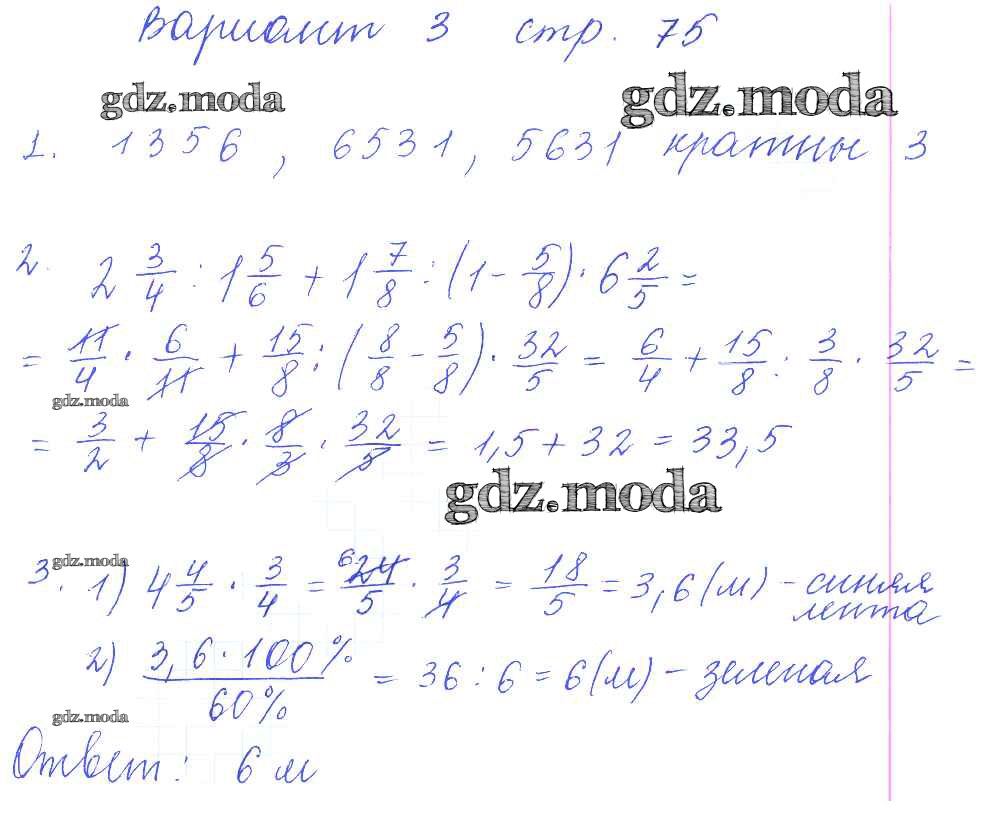 Вариант 3 стр. 75
gdz.moda gdz.moda
1. 1356, 6531, 5631 кратны 3
2. 2 3/4 : 1 5/6 + 1 7/8 : (1 - 5/8) · 6 2/5 =
= 11/4 · 6/11 + 15/8 : (8/8 - 5/8) · 32/5 = 6/4 + 15/8 : 3/8 · 32/5 =
gdz.moda
= 3/2 + 15/8 · 8/3 · 32/5 = 1,5 + 32 = 33,5
gdz.moda
gdz.moda
3. 1) 4 4/5 · 3/4 = 6 24/5 · 3/4 = 18/5 = 3,6 (м) - синяя
лента
2) 3,6 · 100% / 60% = 36 : 6 = 6 (м) - зеленая
gdz.moda
Ответ: 6 м